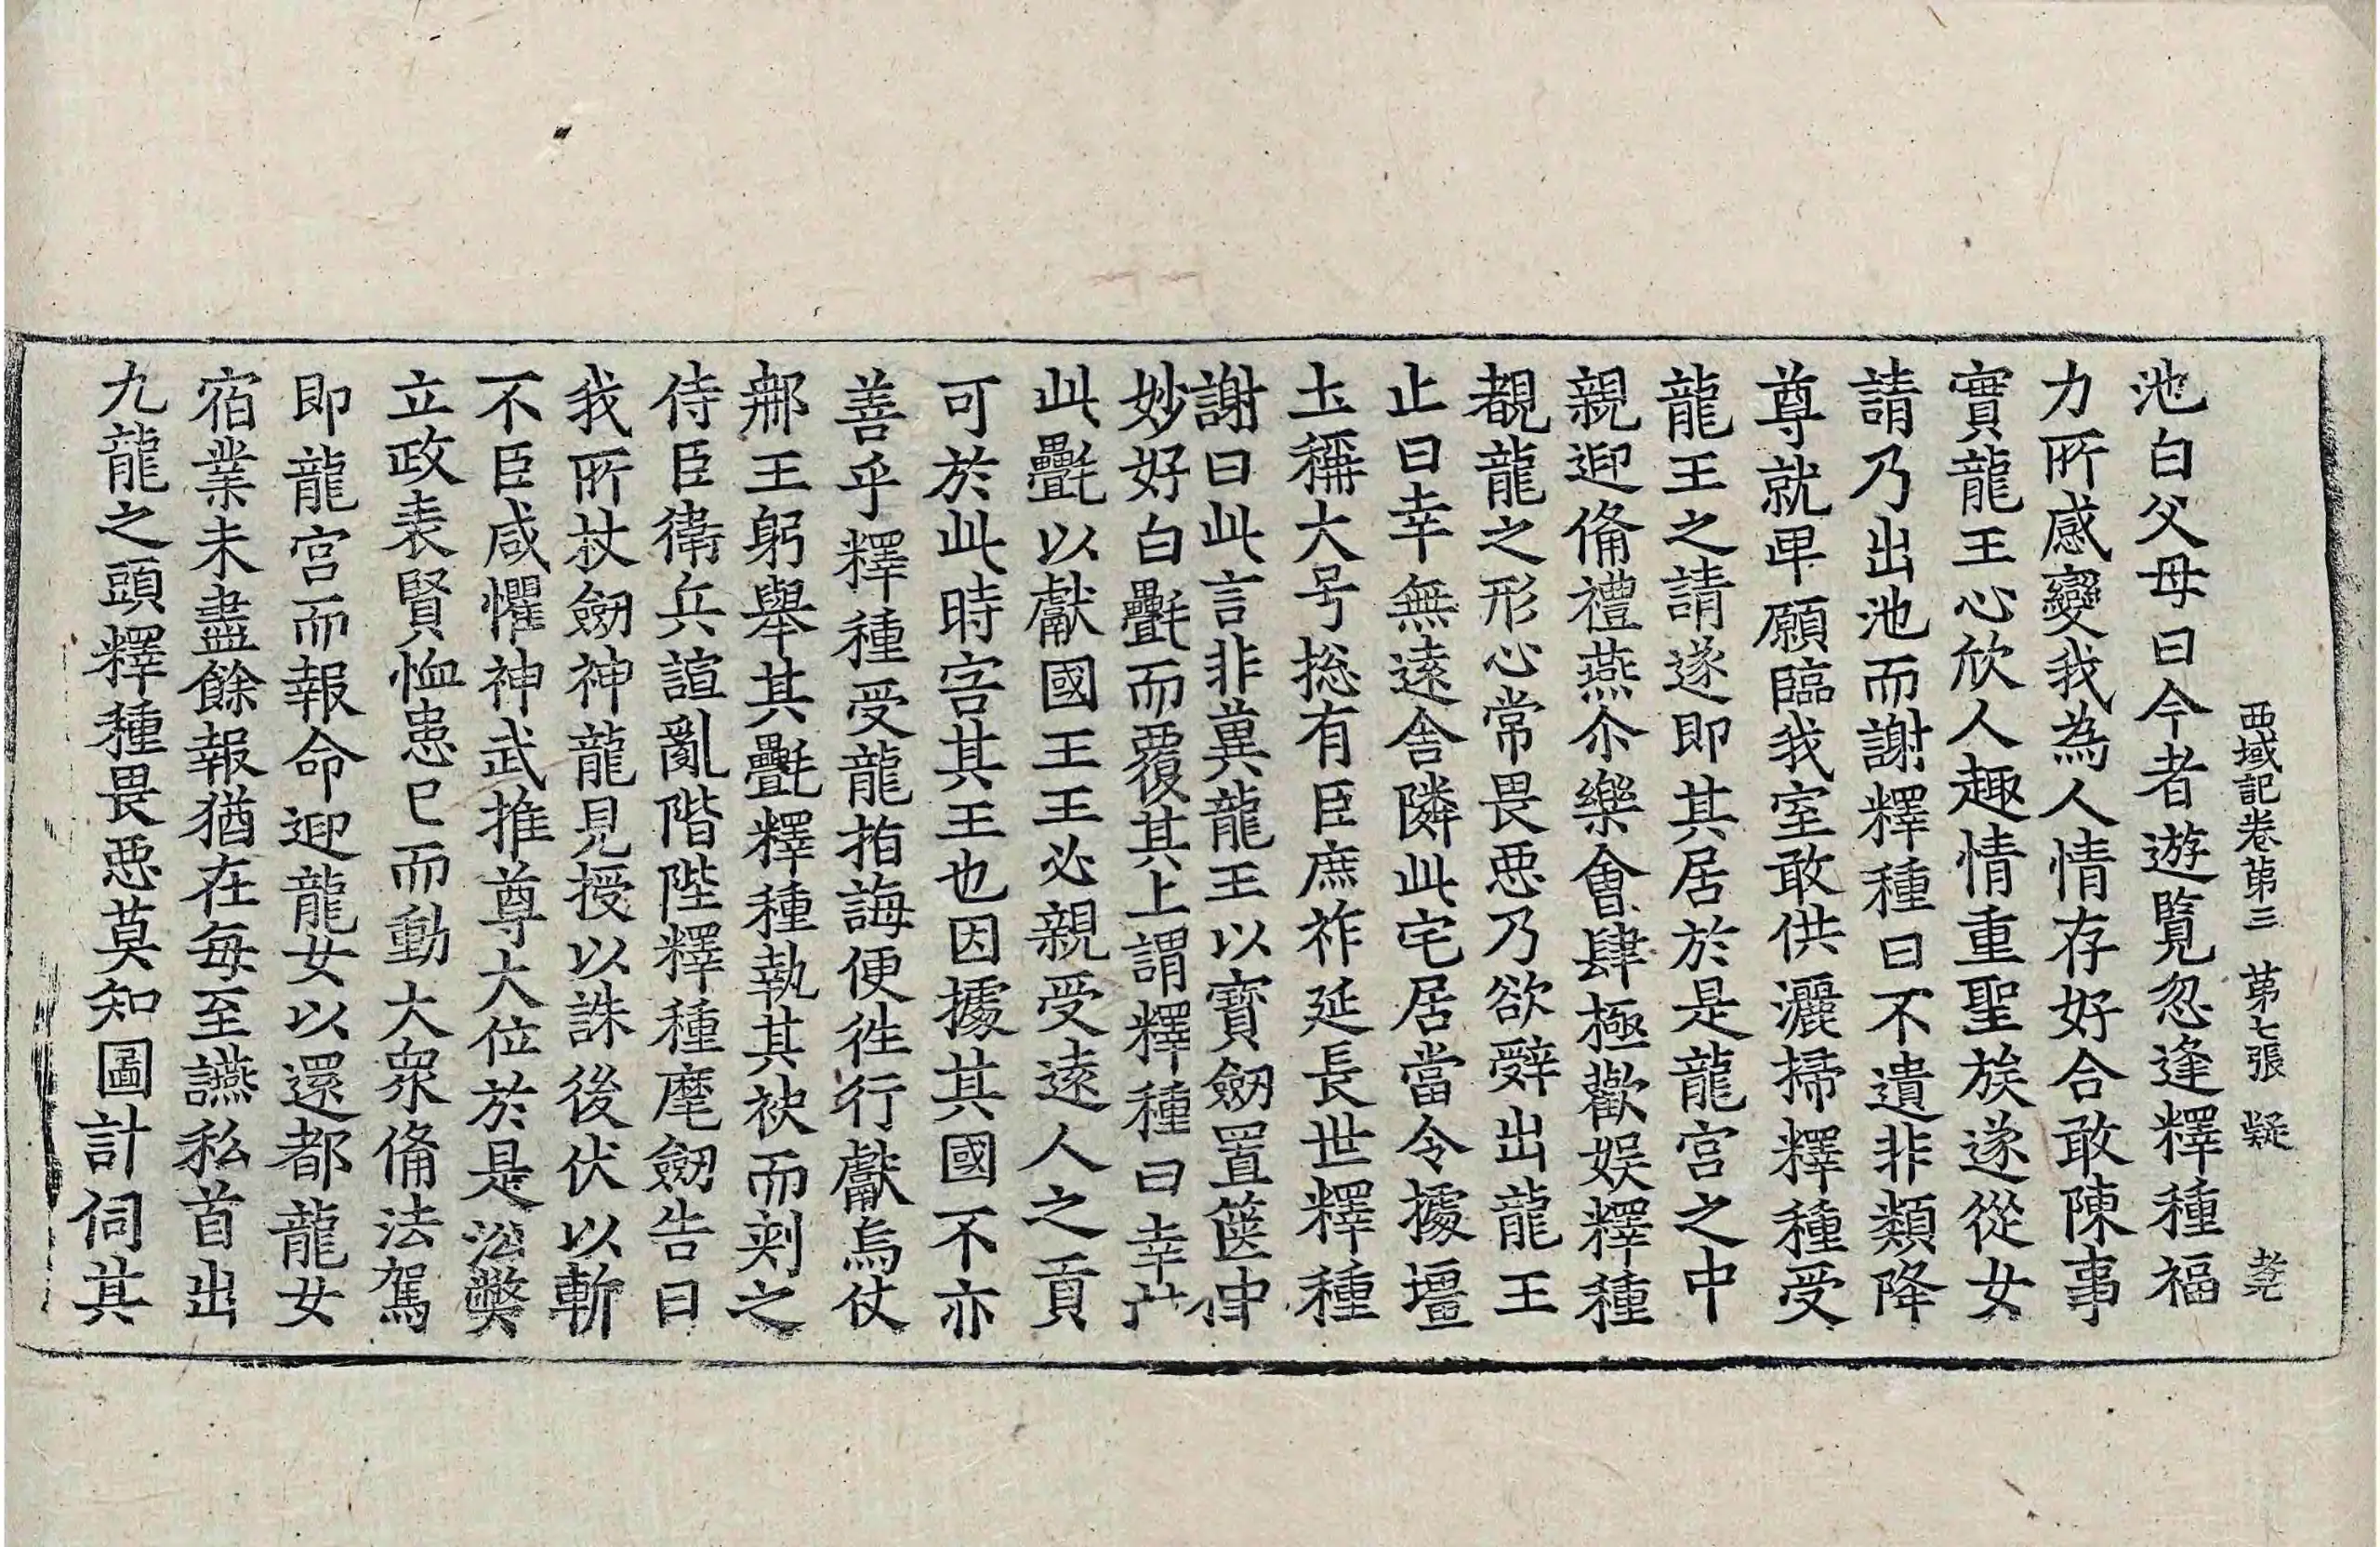 西域記卷第三 第七張 疑
池白父母曰今者遊覽忽逢釋種福
力所感變我為人情存好合敢陳事
實龍王心欣人趣情重聖族遂從女
請乃出池而謝釋種曰不遺非類降
尊就卑願臨我室敢供灑掃釋種受
龍王之請遂即其居於是龍宮之中
親迎俻禮燕尒樂會肆極歡娛釋種
覩龍之形心常畏惡乃欲辭出龍王
止曰幸無遠舍隣此宅居當令據壃
土稱大号捴有臣庶祚延長世釋種
謝曰此言非冀龍王以寶劒置篋中
妙好白㲲而覆其上謂釋種曰幸
此㲲以獻國王王必親受遠人之貢
可於此時害其王也因據其國不亦
善乎釋種受龍指誨便徃行獻烏仗
那王躬舉其㲲釋種執其袂而刾之
侍臣衛兵諠亂階陛釋種麾劒告曰
我所杖劒神龍見授以誅後伏以斬
不臣咸懼神武推尊大位於是㳂弊
立政表賢恤患已而動大衆俻法駕
即龍宮而報命迎龍女以還都龍女
宿業未盡餘報猶在每至讌私首出
九龍之頭釋種畏惡莫知圖計伺其